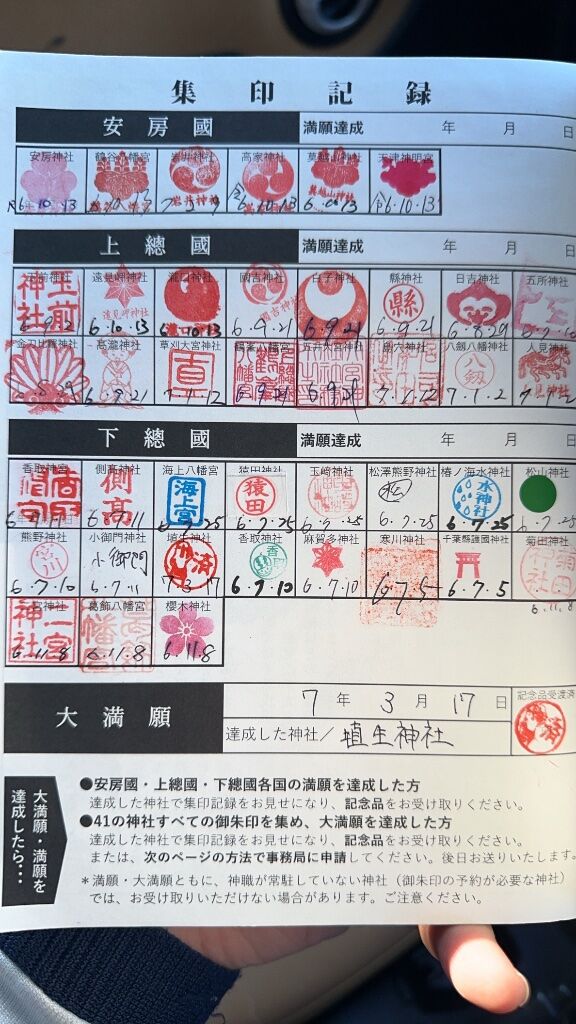 集印記録
安房國 満願達成 年 月 日
安房神社 鶴谷八幡宮 岩井神社 高家神社 莫越山神社 天津神明宮
6.10.13 6.10.13 令6.10.13
上總國 満願達成 年 月 日
玉前神社 遠見岬神社 瀧口神社 國吉神社 白子神社 縣神社 日吉神社 五所神社
6.9.21 6.10.13 6.10.13 6.9.21 6.9.21 6.9.21 6.8.29
金刀比羅神社 高瀧神社 草刈大宮神社 八劔八幡神社 人見神社
6.9.21 7.1.12 6.9.21 6.9.21 7.1.12 7.1.2
下總國 満願達成 年 月 日
香取神宮 側高神社 海上八幡宮 猿田神社 玉﨑神社 松澤熊野神社 椿ノ海水神社 松山神社
6.7.11 6.7.25 6.7.25 6.7.25 6.7.25 6.7.25 6.7.25
熊野神社 小御門神社 埴生神社 香取神社 麻賀多神社 寒川神社 千葉縣護國神社 菊田神社
6.7.10 6.7.11 7.3.17 6.7.10 6.7.10 6.7.5 6.7.5 6.11.8
二宮神社 葛飾八幡宮 櫻木神社
6.11.8 6.11.8 6.11.8
大満願 7年 3月 17日 記念品受渡済
達成した神社/埴生神社 済
大満願・満願を達成したら…
●安房國・上總國・下總國各国の満願を達成した方
達成した神社で集印記録をお見せになり、記念品をお受け取りください。
●41の神社すべての御朱印を集め、大満願を達成した方
達成した神社で集印記録をお見せになり、記念品をお受け取りください。
または、次のページの方法で事務局に申請してください。後日お送りいたします。
＊満願・大満願ともに、神職が常駐していない神社（御朱印の予約が必要な神社）
では、お受け取りいただけない場合があります。ご注意ください。